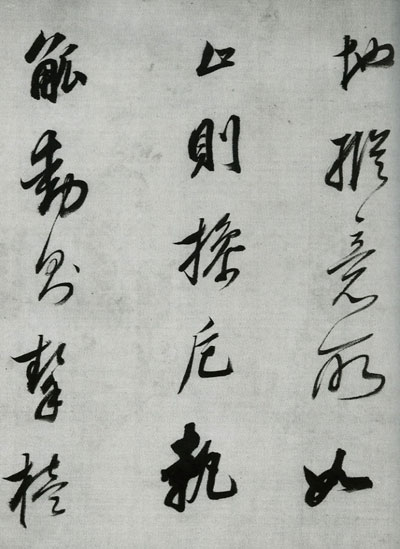 地縱意所如
止則操卮執
觚動則挈榼